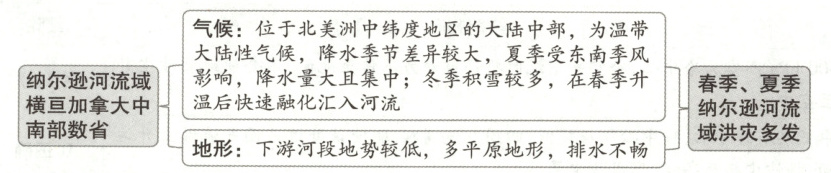 纳尔逊河流域
横亘加拿大中
南部数省
气候：位于北美洲中纬度地区的大陆中部，为温带
大陆性气候，降水季节差异较大，夏季受东南季风
影响，降水量大且集中；冬季积雪较多，在春季升
温后快速融化汇入河流
地形：下游河段地势较低，多平原地形，排水不畅
春季、夏季
纳尔逊河流
域洪灾多发